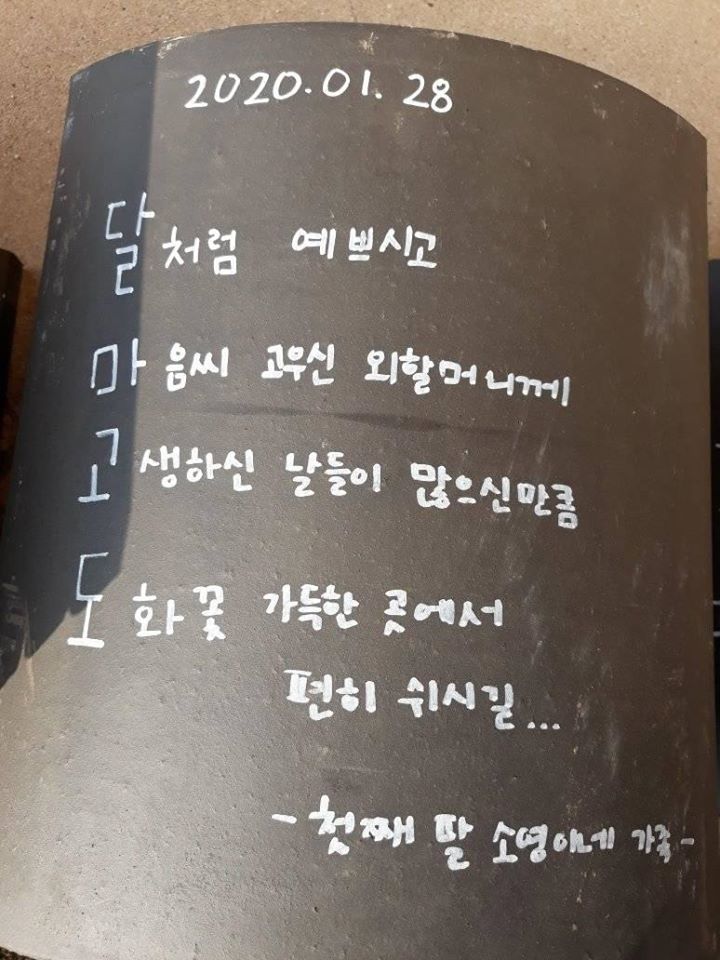 2020.01.28
달처럼 예쁘시고
마음씨 고우신 외할머니께
고생하신 날들이 많으신만큼
도화꽃 가득한 곳에서
편히 쉬시길...
- 첫째 딸 소영이네 가족 -